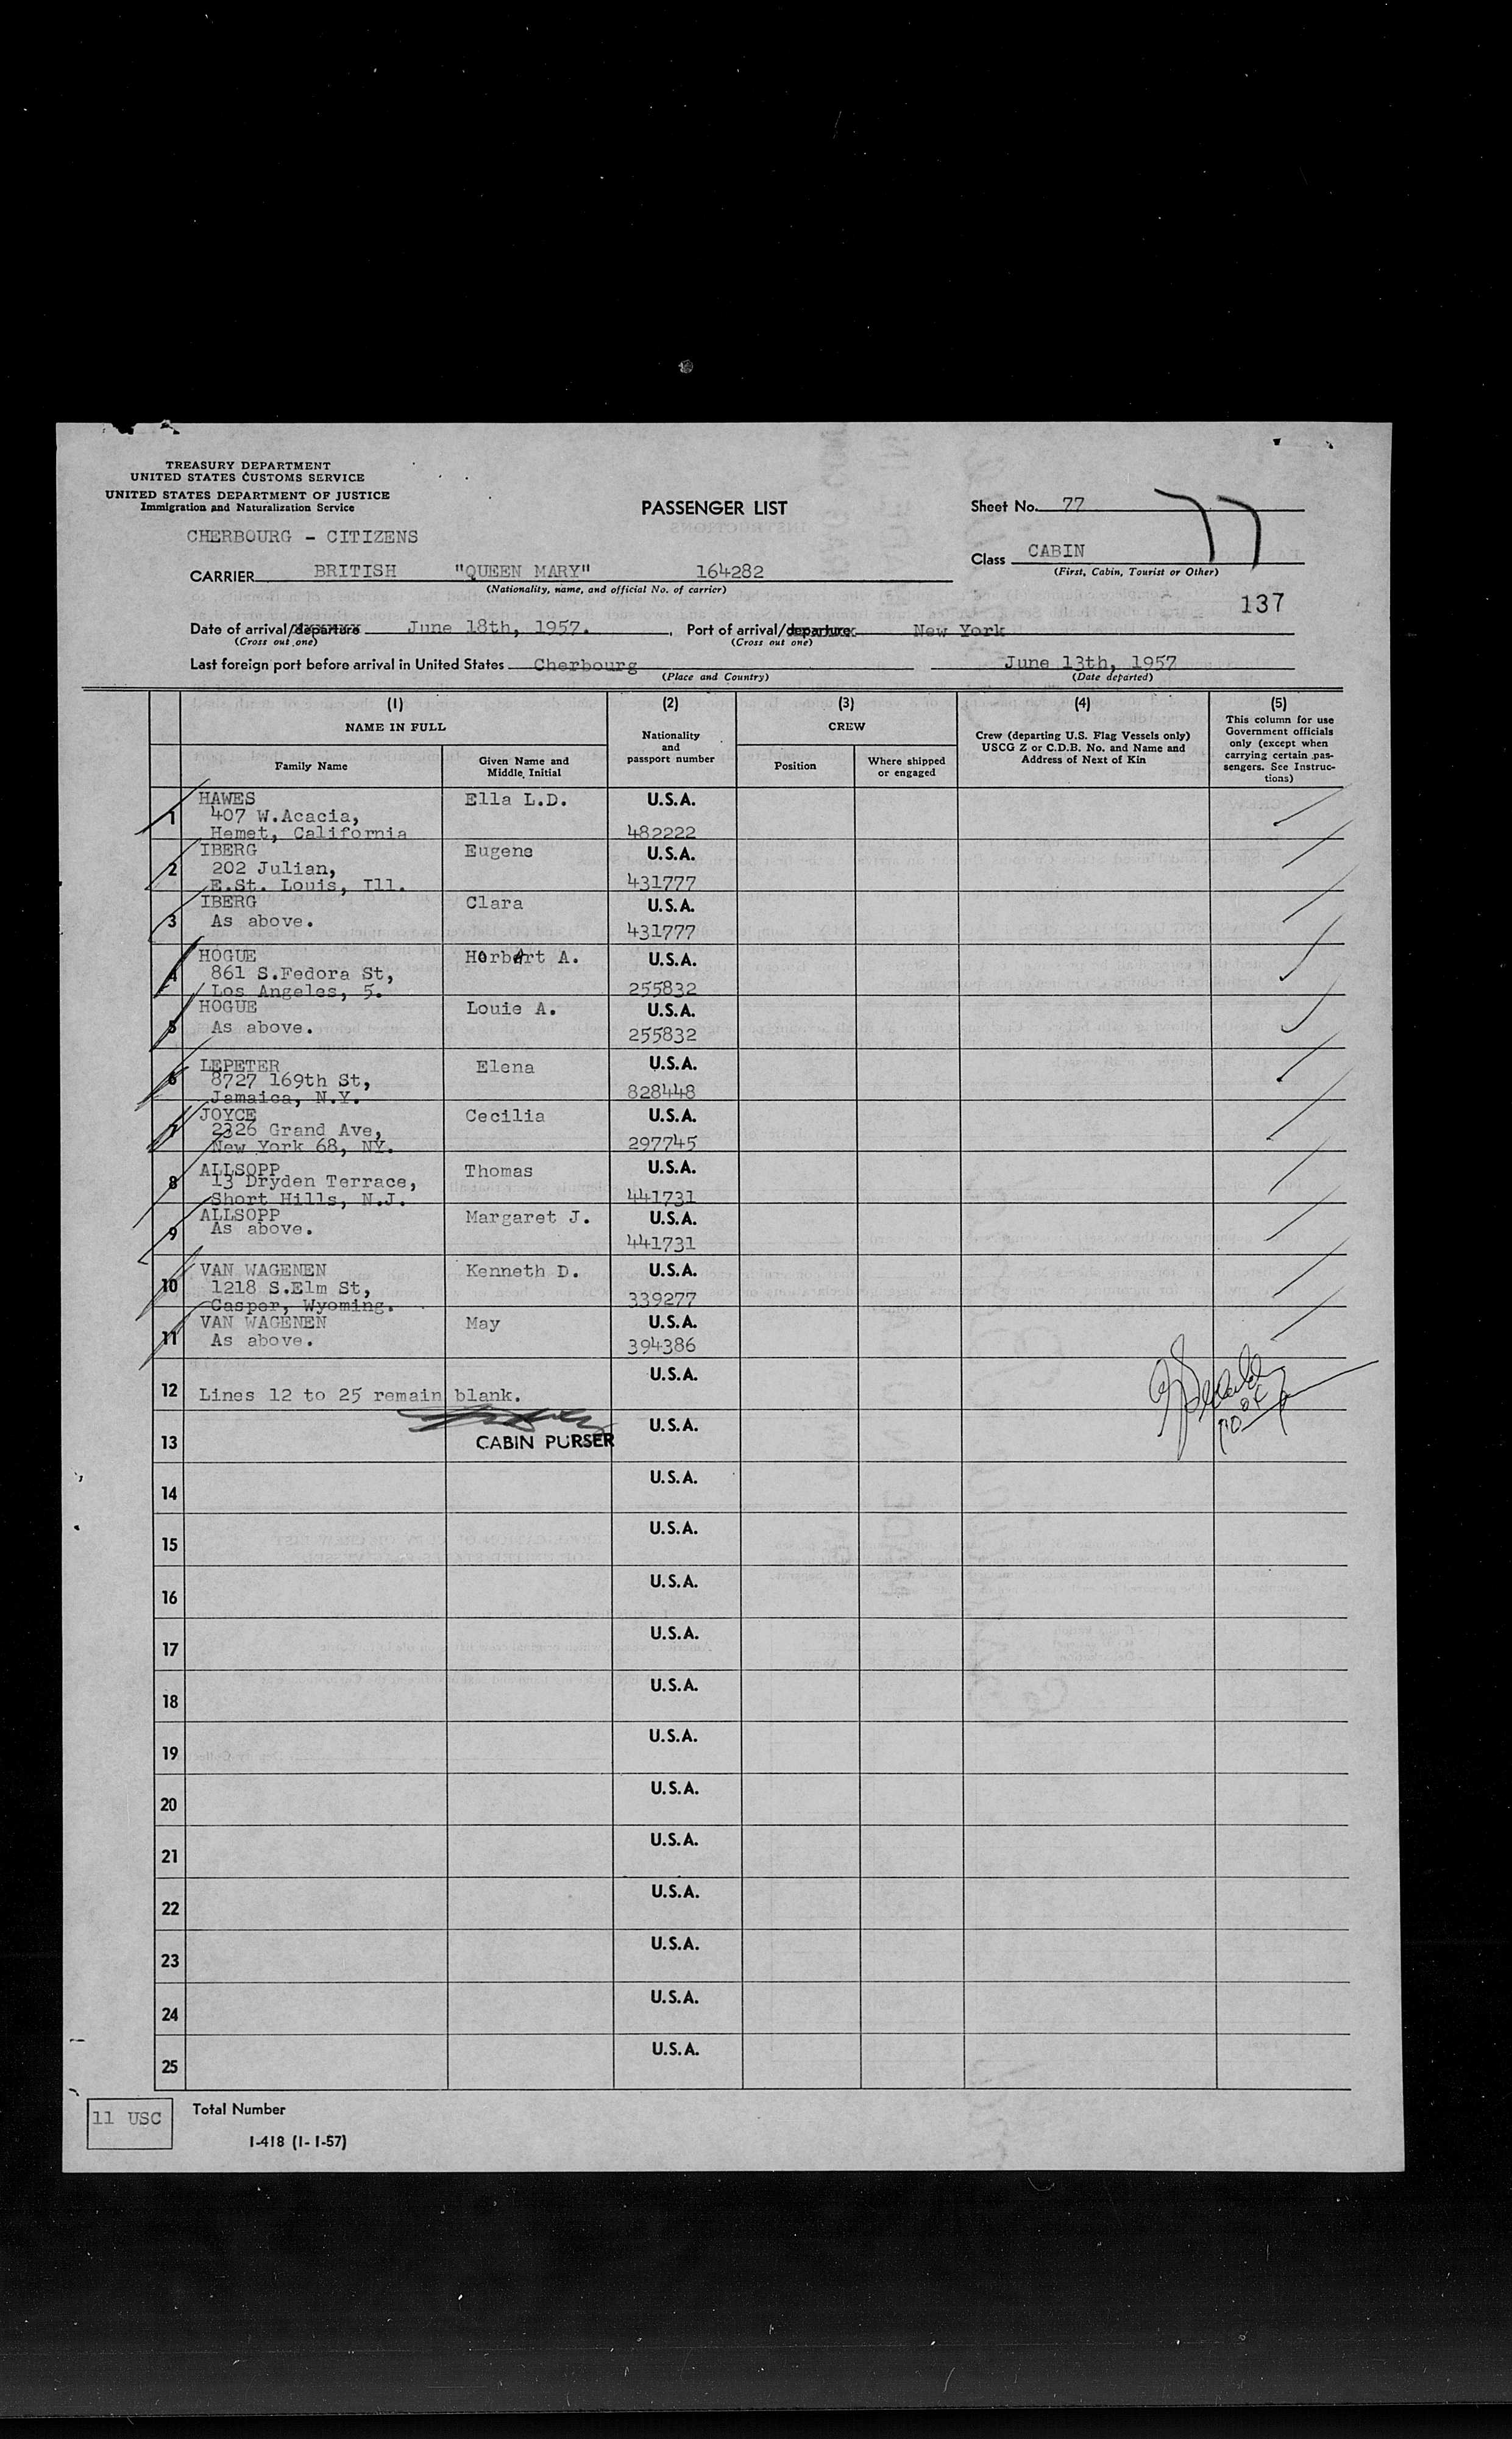 TREASURY DEPARTMENT
UNITED STATES CUSTOMS SERVICE
UNITED STATES DEPARTMENT OF JUSTICE
Immigration and Naturalization Service
PASSENGER LIST
Sheet No. 77
77
CHERBOURG - CITIZENS
Class CABIN
(First, Cabin, Tourist or Other)
CARRIER BRITISH "QUEEN MARY" 164282
(Nationality, name, and official No. of carrier)
137
Date of arrival/departure June 18th, 1957. , Port of arrival/departure New York
(Cross out one) (Cross out one)
Last foreign port before arrival in United States Cherbourg June 13th, 1957
(Place and Country) (Date departed)
(1) (2) (3) (4) (5)
NAME IN FULL
Family Name
Given Name and Middle Initial
Nationality and passport number
CREW
Position
Where shipped or engaged
Crew (departing U.S. Flag Vessels only) USCG Z or C.D.B. No. and Name and Address of Next of Kin
This column for use Government officials only (except when carrying certain pas-sengers. See Instruc-tions)
1 HAWES Ella L.D. U.S.A.
407 W.Acacia,
Hemet, California 482222
2 IBERG Eugene U.S.A.
202 Julian,
E.St. Louis, Ill. 431777
3 IBERG Clara U.S.A.
As above. 431777
4 HOGUE Herbert A. U.S.A.
861 S.Fedora St,
Los Angeles, 5. 255832
5 HOGUE Louie A. U.S.A.
As above. 255832
6 LEPETER Elena U.S.A.
8727 169th St,
Jamaica, N.Y. 828448
7 JOYCE Cecilia U.S.A.
2326 Grand Ave,
New York 68, NY. 297745
8 ALLSOPP Thomas U.S.A.
13 Dryden Terrace,
Short Hills, N.J. 441731
9 ALLSOPP Margaret J. U.S.A.
As above. 441731
10 VAN WAGENEN Kenneth D. U.S.A.
1218 S.Elm St,
Casper, Wyoming. 339277
11 VAN WAGENEN May U.S.A.
As above. 394386
12 Lines 12 to 25 remain blank. U.S.A.
13 CABIN PURSER U.S.A.
14 U.S.A.
15 U.S.A.
16 U.S.A.
17 U.S.A.
18 U.S.A.
19 U.S.A.
20 U.S.A.
21 U.S.A.
22 U.S.A.
23 U.S.A.
24 U.S.A.
25 U.S.A.
11 USC Total Number
I-418 (1-1-57)